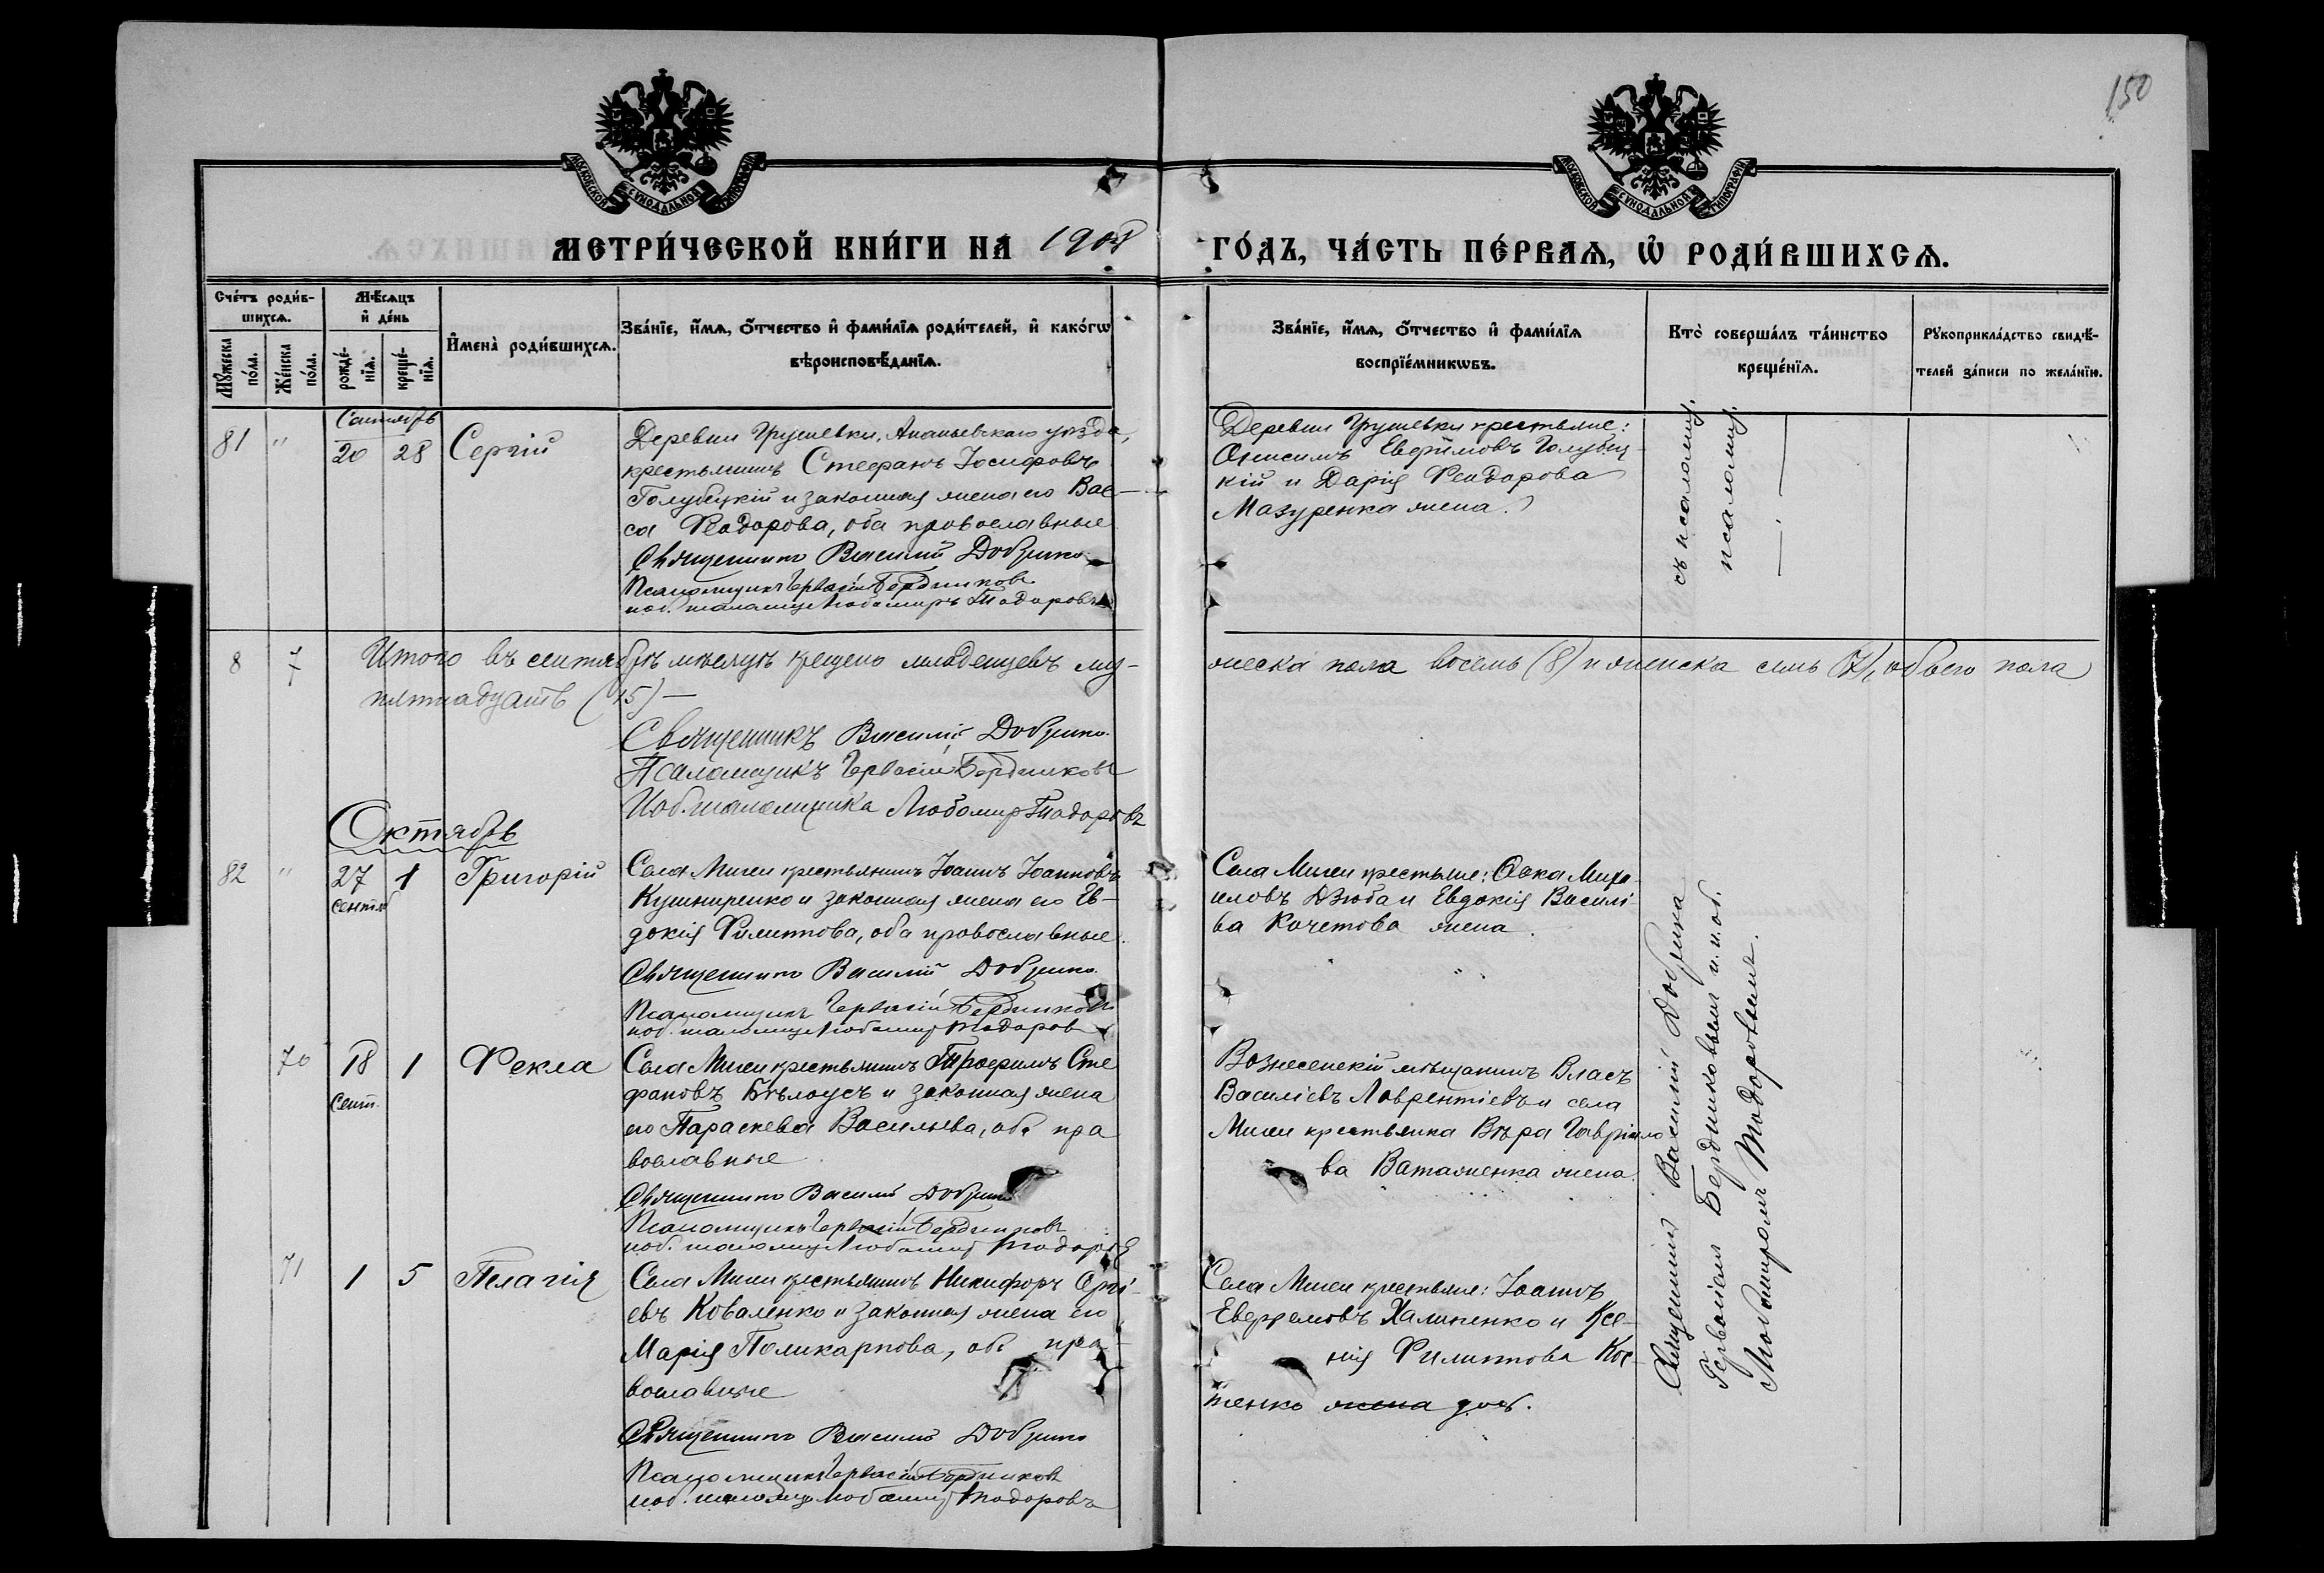 150
МОСКОВСКОЙ СѴНОДАЛЬНОЙ ТИПОГРАФІИ
МОСКОВСКОЙ СѴНОДАЛЬНОЙ ТИПОГРАФІИ
МЕТРИ́ЧЕСКОЙ КНИ́ГИ НА 190
ГО́ДЪ, ЧА́СТЬ ПЕ́РВАѦ, Ѡ҆ РОДИ́ВШИХСѦ.
Сче́тъ роди́в-
шихсѧ.
Мꙋ́жеска
по́ла.
Же́нска
по́ла.
Мѣ́сѧцъ
и҆ де́нь
рожде́-
нїѧ.
креще́-
нїѧ.
И҆мена̀ роди́вшихсѧ.
Зва́нїе, и҆́мѧ, ѻ҆́тчество и҆ фами́лїѧ роди́телей, и҆ како́гѡ
вѣроисповѣ́данїѧ.
Зва́нїе, и҆́мѧ, ѻ҆́тчество и҆ фами́лїѧ
воспрїе́мникѡвъ.
Кто̀ соверша́лъ та́инство
креще́нїѧ.
Рꙋкоприкла́дство свидѣ́-
телей за́писи по жела́нїю.
Сентябрь
81 " 20 28 Сергій
Деревни Грушевки, Ананьевскаго уѣзда,
крестьянинъ Стефанъ Іосифовъ
Голубецкій и законная жена его Вас-
са Ѳеодорова, оба православные
Священникъ Василій Добрико
Псаломщикъ Гервасій Бердниковъ
и об. псаломщ. Любомиръ Тодоровъ
Деревни Грушевки крестьяне:
Онисимъ Евфимовъ Голубец-
кій и Дарія Ѳеодорова
Мазуренка жена.
съ псаломщ.
псаломщ.
8 7 Итого въ сентябрѣ мѣсяцѣ крещено младенцевъ му-
жеска пола восемь (8) и женска семь (7), обоего пола
пятнадцать (15) —
Священникъ Василій Добрико
Псаломщикъ Гервасій Бердниковъ
И об. псаломщика Любомиръ Тодоровъ
Октябрь
82 " 27 1 Григорій
сентяб
Села Мигеи крестьянинъ Іоаннъ Іоанновъ
Кушниренко и законная жена его Ев-
докія Филиппова, оба православные.
Священникъ Василій Добрико
Псаломщикъ Гервасій Бердниковъ
и об. псаломщ. Любомиръ Тодоровъ
Села Мигеи крестьяне: Савка Миха-
иловъ Дзюба и Евдокія Василі
ва Кочетова жена.
70 18 1 Ѳекла
Сент.
Села Мигеи крестьянинъ Трофимъ Сте
фановъ Бѣлоусъ и законная жена
его Параскева Васильева, оба пра
вославные.
Священникъ Василій Добрико
Псаломщикъ Гервасій Бердниковъ
и об. псаломщ. Любомиръ Тодоровъ
Вознесенскій мѣщанинъ Власъ
Василіевъ Лаврентіевъ и села
Мигеи крестьянка Вѣра Гавріило
ва Ватаженка жена.
71 1 5 Пелагія
Села Мигеи крестьянинъ Никифоръ Сергі-
евъ Коваленко и законная жена его
Марія Поликарпова, оба пра-
вославные
Священникъ Василій Добрико
Псаломщикъ Гервасій Бердниковъ
и об. псаломщ. Любомиръ Тодоровъ
Села Мигеи крестьяне: Іоаннъ
Евфремовъ Халипенко и Ксе-
нія Филиппова Кос-
тенко жена доч.
Священникъ Василій Добрико
Гервасіемъ Бердниковымъ и и. об.
Любомиромъ Тодоровымъ.